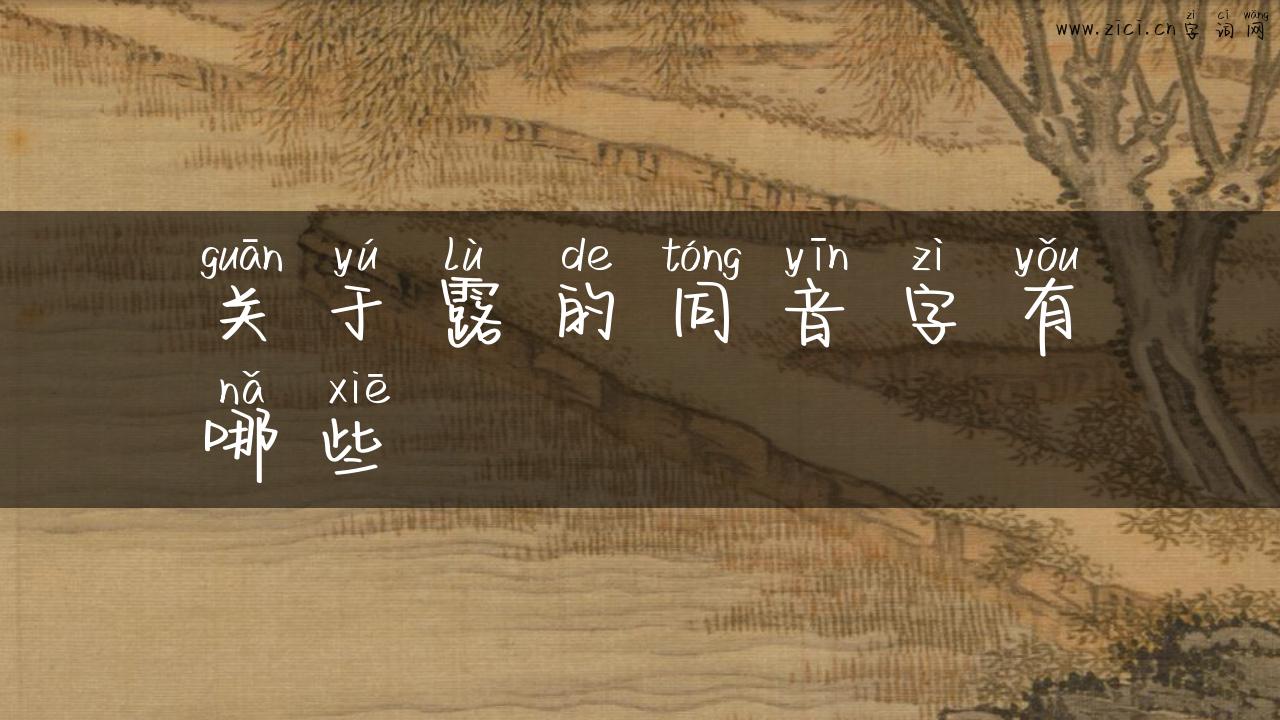 zì cí wǎng
www.zici.cn字词网
guān yú lù de tóng yīn zì yǒu
关于露的同音字有
nǎ xiē
哪些